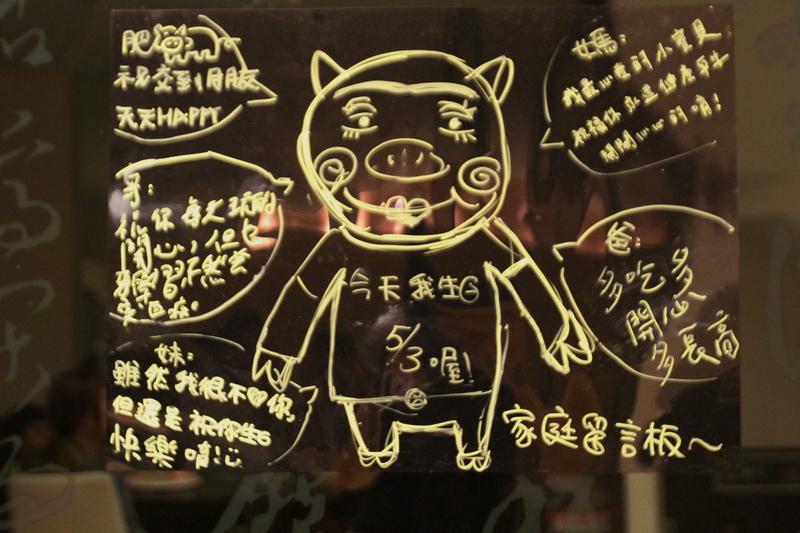 肥
不要交到明朋友
天天HAPPY
媽:
我最心愛的小寶貝
祝福你永遠健康平安
開開心心的唷!
哥:
你每天玩的
開心,但也
要學習不然會
爸:
多吃多
開心
多長高
今天我生日
5/3喔!
妹:
雖然我很不如你,
但還是祝你生日
快樂唷!
家庭留言板~